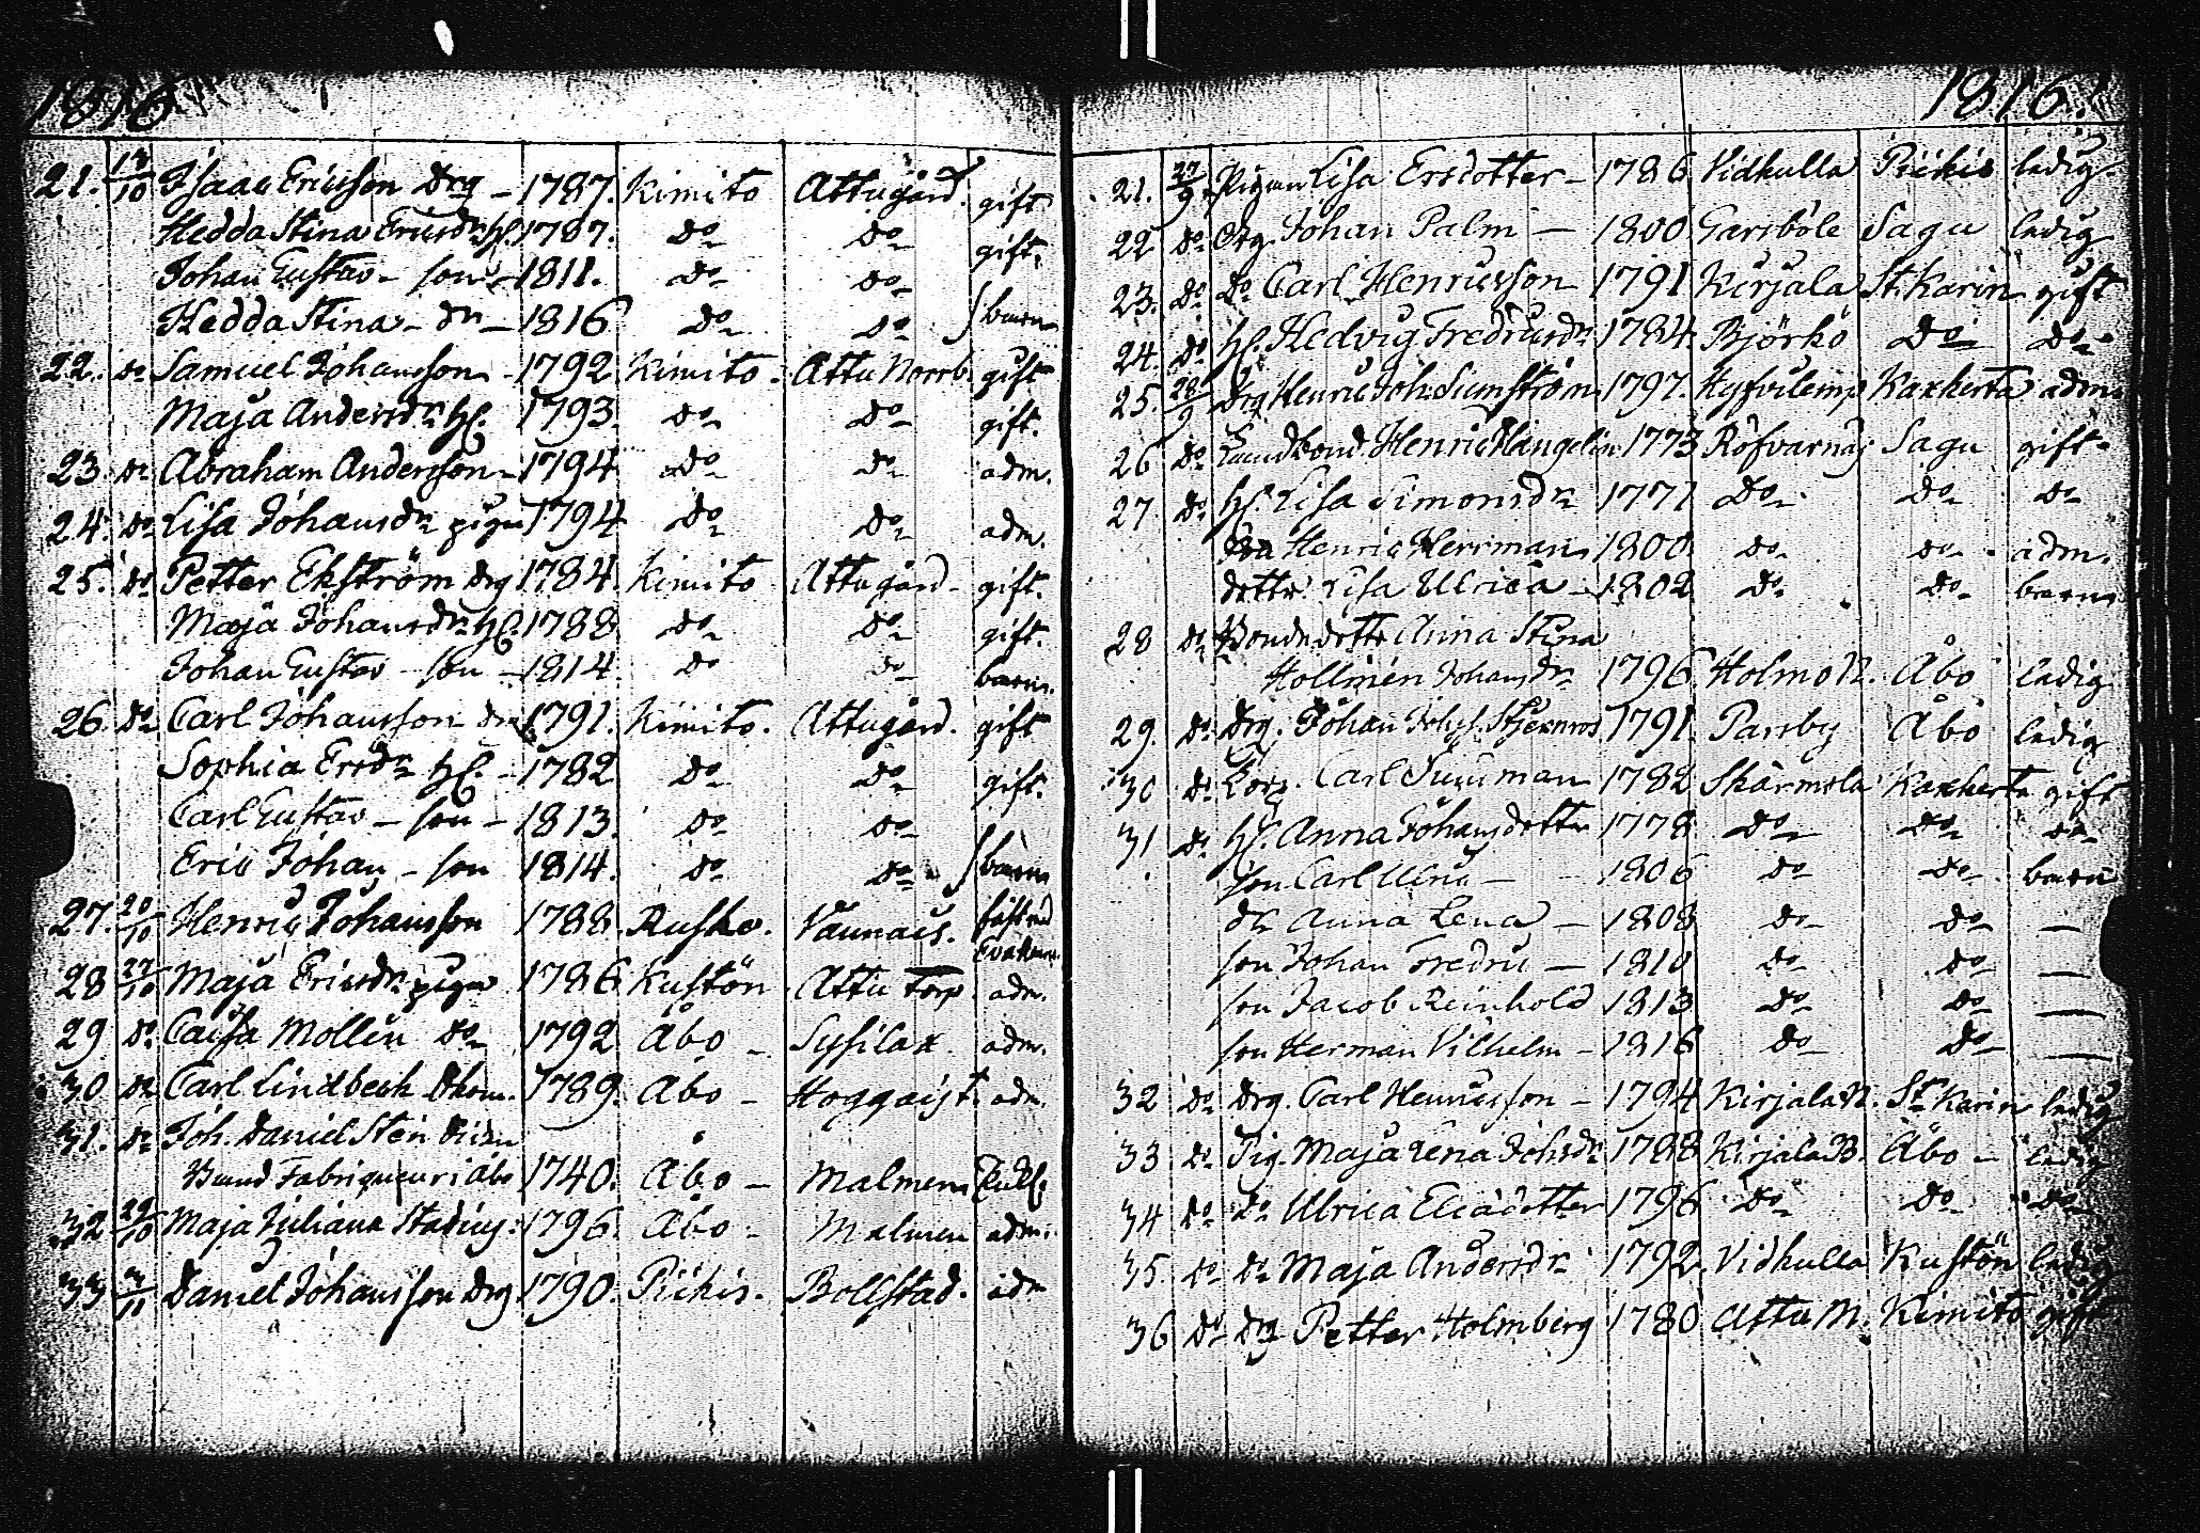 1816
21. 13/10 Isaac Ericsson Drg - 1787. Kimito Attugård. gift
Hedda Stina Ericsdr H. 1787. Do Do gift.
Johan Gustav - son - 1811. Do Do
Hedda Stina - dr - 1816 Do Do barn
22. Do Samuel Johansson - 1792 Kimito. Attu Norrb. gift
Maja Andersdr H. 1793. Do Do gift.
23 Do Abraham Andersson - 1794 Do Do adm.
24. Do Lisa Johansdr pigan 1794 Do Do adm.
25. Do Petter Ekström Drg 1784. Kimito Attugård - gift.
Maja Johansdr H. 1788 Do Do gift.
Johan Gustav - son - 1814 Do Do barn.
26. Do Carl Johansson Drg 1791. Kimito. Attugård. gift
Sophia Ersdr H. - 1782 Do Do gift.
Carl Gustav - son - 1813. Do Do
Eric Johan - son 1814. Do Do barn
27. 20/10 Henric Johansson 1788. Rusko. Vaunais.
28 27/10 Maja Ericsdr pigan 1786 Kustön Attu Torp. adm.
29 Do Caisa Mollin Do 1792 Åbo - Sysilax. adm.
30 Do Carl Lindbeck 1789. Åbo - adm.
31. Do Joh. Daniel Sten
Fabriqueur i Åbo 1740. Åbo - Malmen
32 29/10 Maja Juliana Stadius. 1796. Åbo - Malmen adm.
33 3/11 Daniel Johansson Drg. 1790. Piikis. Bollstad. adm
1816.
21. 27/9 Pigan Lisa Ersdotter - 1786 Vidkulla Piikis ledig.
22 Do Drg. Johan Palm - 1800 Garsböle Sagu ledig
23. Do Do Carl Henricsson 1791 Kirjala St. Karin gift
24. Do H. Hedvig Fredricsdr 1784. Björkö Do Do
25. 28/9 Drg Henric Joh. 1797. Kaxkerta adm.
26 Do Henric 1773 Sagu gift.
27. Do H. Lisa Simonsdr 1771 Do Do Do
Henric Herrman 1800 Do Do adm.
dottr. Lisa Ulrica - 1802 Do Do barn
28 Do Bondedottr Anna Stina
Hollmén Johansdr 1796. Holmo N. Åbo ledig
29. Do Drg. Johan Johs. Stjernros 1791. Parsby Åbo ledig
30 Do Korp. Carl 1782 Skärmola Kaxkerta gift
31 Do H. Anna Johansdotter 1778 Do Do Do
son Carl Ulric - 1806 Do Do barn
dr Anna Lena - 1808 Do Do —
son Johan Fredric - 1810 Do Do —
son Jacob Reinhold 1813 Do Do —
son Herman Vilhelm - 1816 Do Do —
32 Do Drg. Carl Henricsson - 1794 Kirjala N. St. Karin ledig
33 Do Pig. Maja Lena Johsdr 1788 Kirjala B. Åbo - ledig
34 Do Do Ulrica Eliædotter 1796 Do Do Do
35. Do Do Maja Andersdr 1792. Vidkulla Kustön ledig
36 Do Drg Petter Holmberg 1780 Attu M. Kimito gift